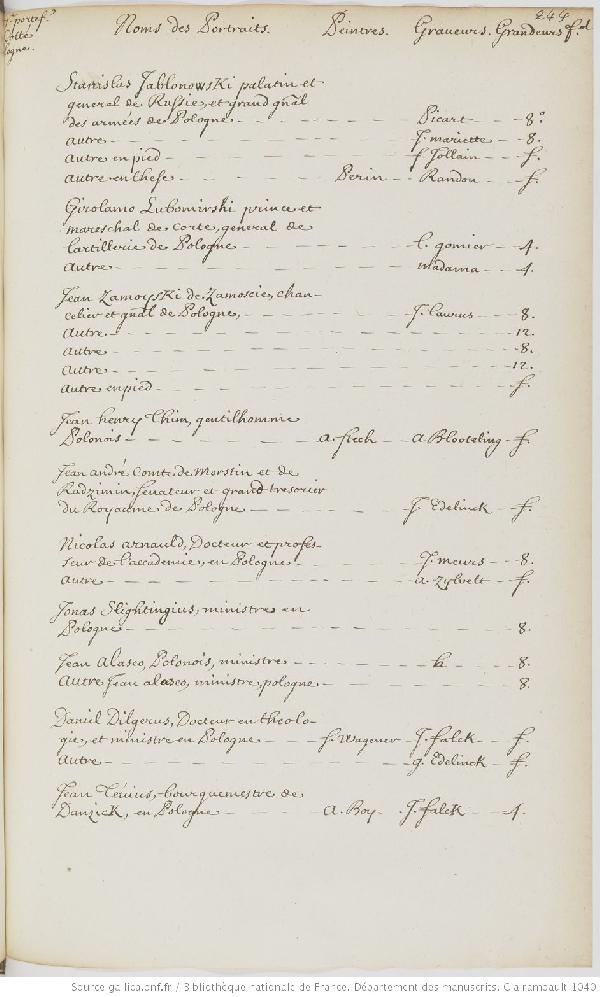 Noms des Portraits. Peintres. Graveurs. Grandeurs
Stanislas Jablonowski palatin et
general de Russie, et grand gñal
des armées de Pologne - Picart - 8.°
autre - J. mariette - 8.
autre en pied - f. Jollain - f.
autre en these - Perin - Randon - f.
Girolamo Lubomirski prince et
mareschal de Corte, general de
l'artillerie de Pologne - 4.
autre - madama - 4.
Jean Zamoyski de Zamoscie, chan-
celier et gñal de Pologne, - J. laurus - 8.
autre - 12.
autre - 8.
autre - 12.
autre en pied - f.
Jean henry Thim, gentilhomme
Polonois - a. stech - a. Blooteling - f.
Jean andré Comte de Morstin et de
Radzimin, senateur et grand tresorier
du Royaume de Pologne - J. Edelinck - f.
Nicolas arnauld, Docteur et profes-
seur de l'accademie, en Pologne - J. meurs - 8.
autre - a. zylvelt - f.
Jonas Slightingius, ministre en
Pologne - 8.
Jean Alasco, Polonois, ministre - h - 8.
autre Jean alasco, ministre, pologne - 8.
Daniel Dilgerus, Docteur en theolo-
gie, et ministre en Pologne - f. Wagener - J. falck - f.
autre - g. Edelinck - f.
Jean bourguemestre de
Danzick, en Pologne - A. Boy - J. falck - 4.
Source gallica.bnf.fr / Bibliothèque nationale de France. Département des manuscrits. Clairambault 1040